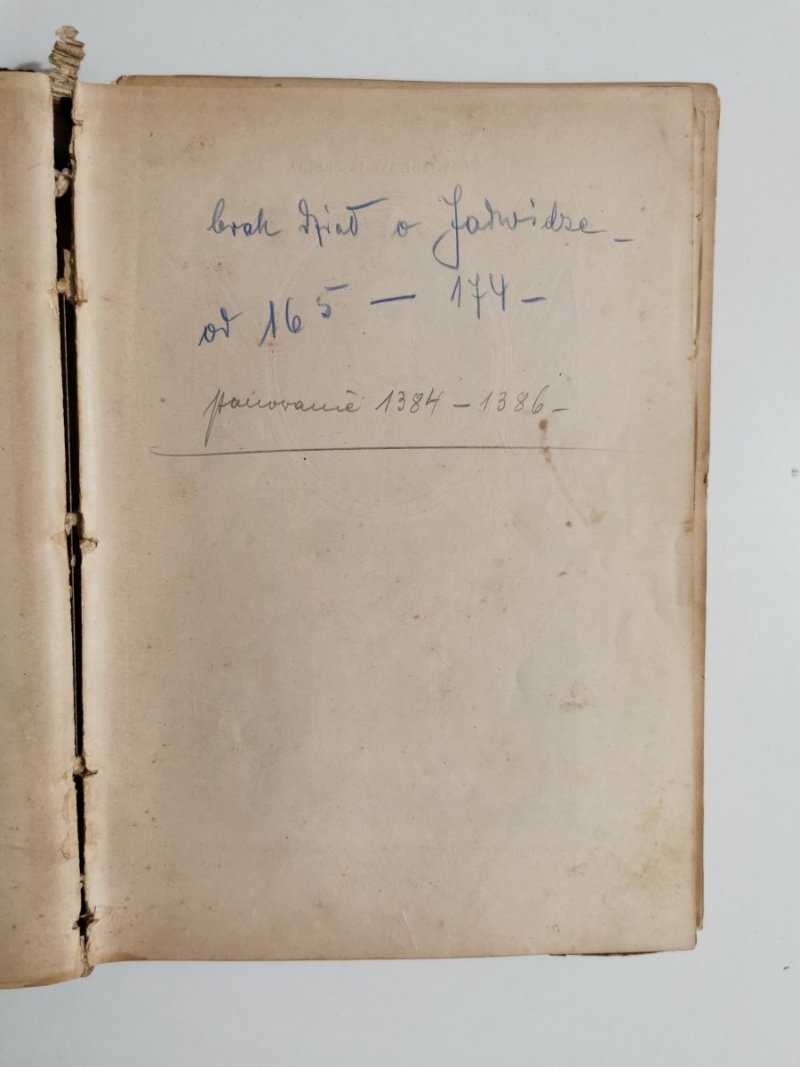 brak dział o Jadwidze –
od 165 — 174 –
panowanie 1384 – 1386 –